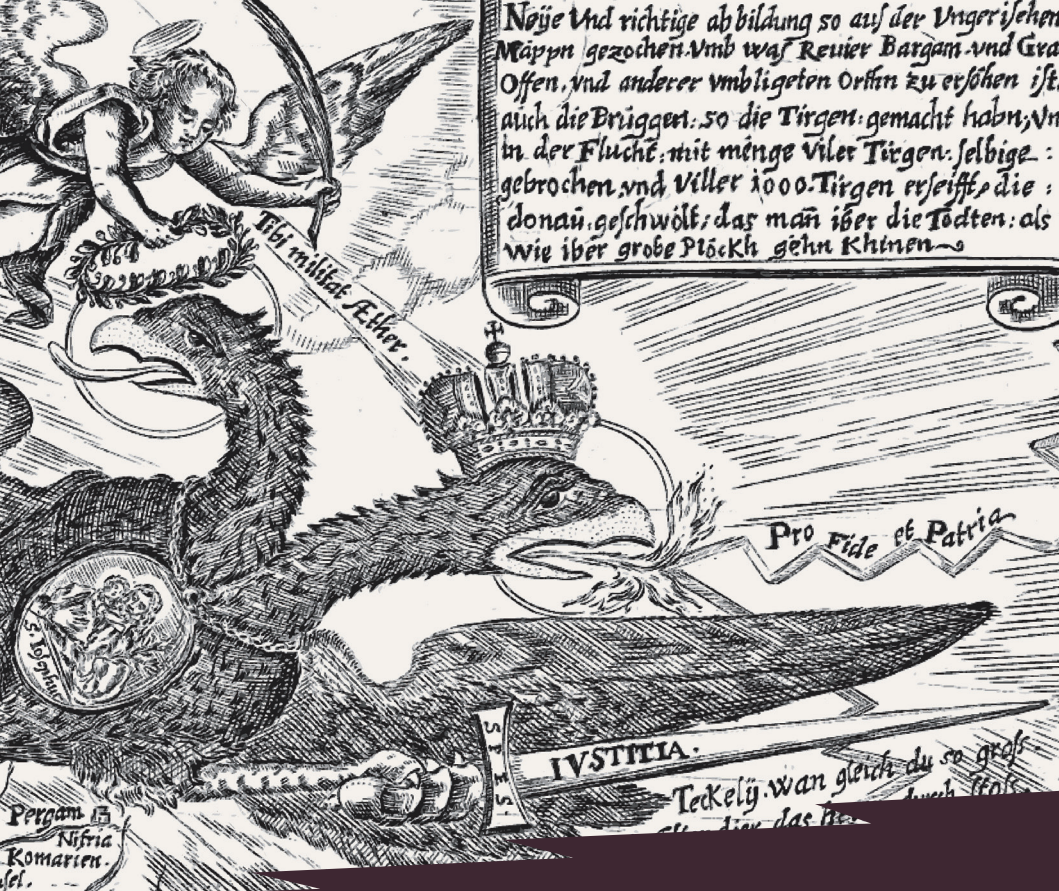 Neÿe Vnd richtige abbildung so auf der Vngerischen
Mappn gezochen. Vmb was Reuier Bargam. vnd Gra
Offen, vnd anderer vmbligeten Orthn zu ersöhen ist.
auch die Bruggen: so die Tirgen: gemacht habn, Vn
in der Flucht. mit menge Viler Tirgen: selbige :
gebrochen. vnd Viller 1000. Tirgen erseifft, die :
donau. geschwölt; das man iber die Todten: als
wie iber grobe Plöckh gehn Khinen
Tibi militat Æther.
Pro Fide et Patria
S. Iosephus
SPES.
IVSTITIA.
Teckelÿ. wan gleich du so gross.
das
durch
Pergam 13
Nifria
Komarien.
sel.